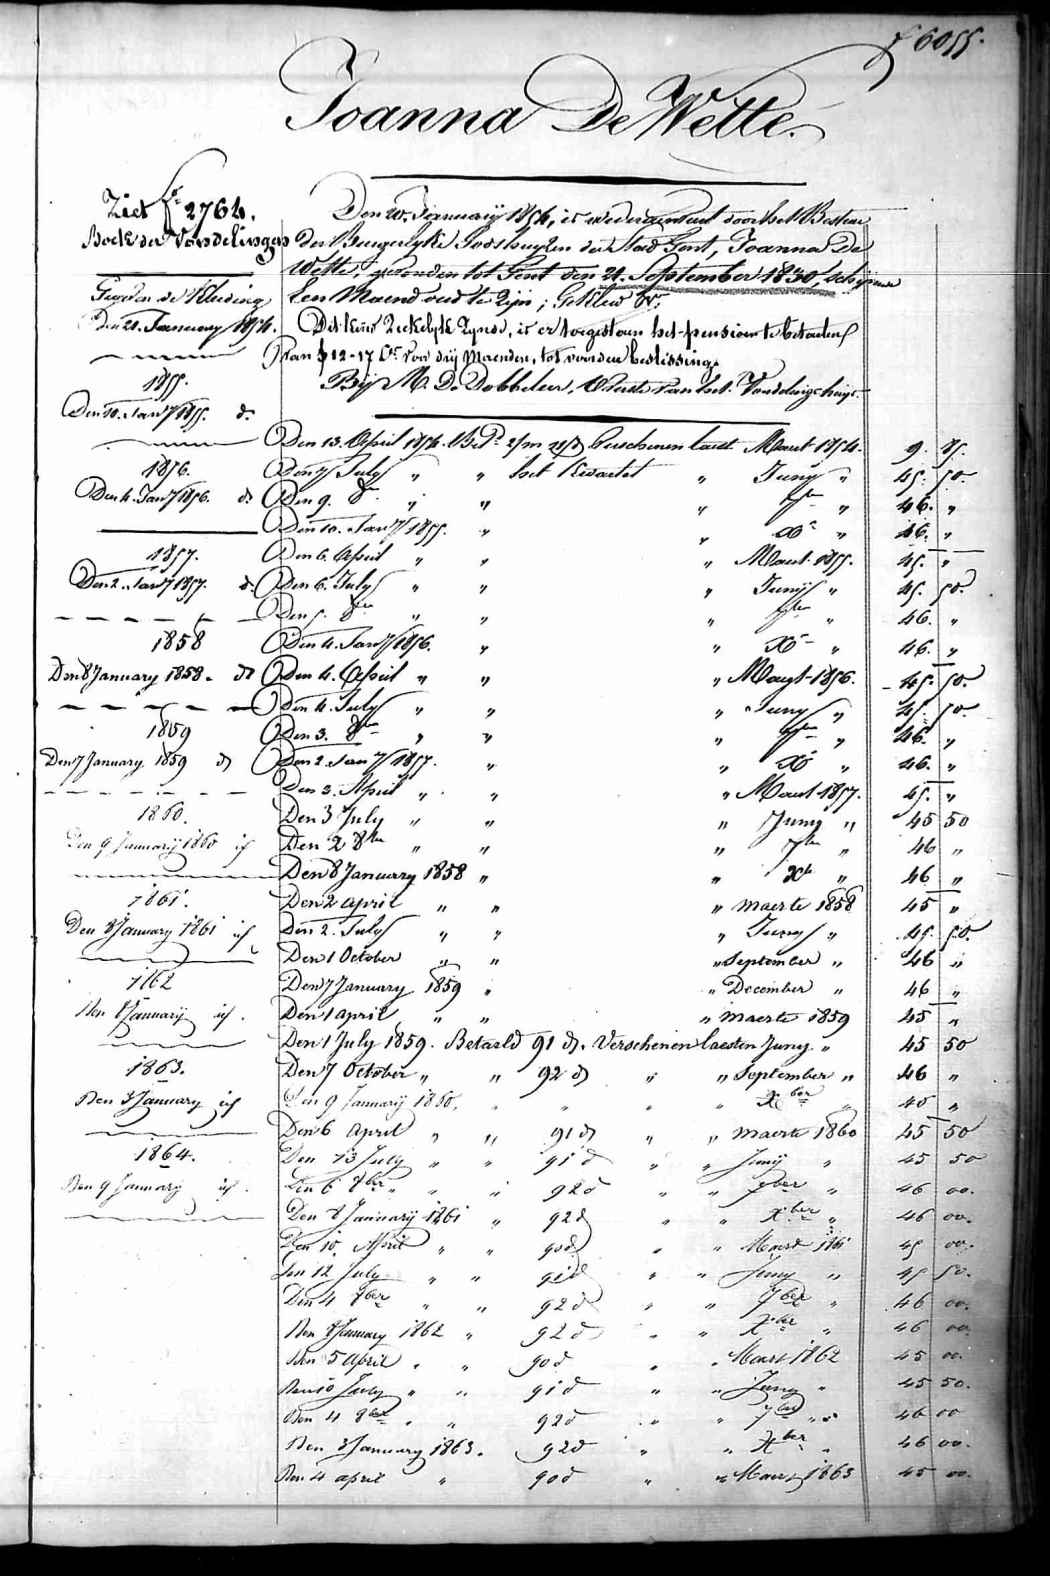 fo 6055.
Joanna De Wette.
Ziet fo 2764.
Boek der Vondelingen
Gegeven de Kleeding
Den 21. January 1854.
1855.
Den 10. Jany 1855. do
1856.
Den 4. Jany 1856. do
1857.
Den 2. Jany 1857. do
1858
Den 8 January 1858. do
1859
Den 7 January 1859 do
1860.
Den 9 January 1860 id
1861.
Den 8 January 1861 id
1862
Den 8 January id.
1863.
Den 3 January id
1864.
Den 9 January id.
Den January 1854, is wederom door het Bestuer
der Burgerlyke Godshuyzen der Stad Gent, Joanna De
Wette, gevonden tot Gent den 21. September 1830, schynende
Een Maend oud te zijn;
Dit kind ziekelyk zynde, is er toegestaen het pensioen te betaelen
van 12-17 Cs voor dry Maenden, tot voordere beslissing.
By M. De Dobbeleer, van het Vondelinghuys.
Den 13. April 1854. Verschenen laest Maert 1854. 9. 75.
Den 7 July " " het Kwartel " Juny " 45. 50.
Den 9. 8er " " " 7ber " 46. "
Den 10. Jany 1855. " " Xr " 46. "
Den 6. April " " " Maert 1855. 45. "
Den 6. July " " " Juny " 45. 50.
Den 5. 8er " " " 7ber " 46. "
Den 4. Jany 1856. " " Xr " 46. "
Den 4. April " " " Maert 1856. 45. 50.
Den 4. July " " " Juny " 45. 50.
Den 3. 8er " " " 7ber " 46. "
Den 2. Jany 1857. " " Xr " 46. "
Den 3. April " " " Maert 1857. 45. "
Den 3 July " " " Juny " 45 50
Den 2 8ber " " " 7ber " 46 "
Den 8 January 1858 " " Xb " 46 "
Den 2 April " " " maerte 1858 45 "
Den 2. July " " " Juny " 45. 50.
Den 1 October " " " September " 46 "
Den 7 January 1859 " " December " 46 "
Den 1 april " " " maerte 1859 45 "
Den 1 July 1859. Betaeld 91 d. Verschenen laesten Juny. " 45 50
Den 7 October " " 92 d " " September " 46 "
Den 9 January 1860. " " " " Xber " 46 "
Den 6 April " " 91 d " " maerte 1860 45 50
Den 13 July " " 91 d " " Juny " 45 50
Den 6 8ber " " " 92 d " " 7ber " 46 00.
Den 8 January 1861 " 92 d " " Xber " 46 00.
Den 10 April " " 90 d " " Maert 1861 45 00.
Den 12 July " " 91 d " " Juny " 45 50.
Den 4 8ber " " 92 d " " 7ber " 46 00.
Den 8 January 1862 " 92 d " " Xber " 46 00.
Den 5 April " " 90 d " " Maert 1862 45 00.
Den 10 July " " 91 d " " Juny " 45 50.
Den 4 8ber " " 92 d " " 7ber " 46 00
Den 3 January 1863. 92 d " " Xber " 46 00.
Den 4 april " 90 d " " Maert 1863 45 00.